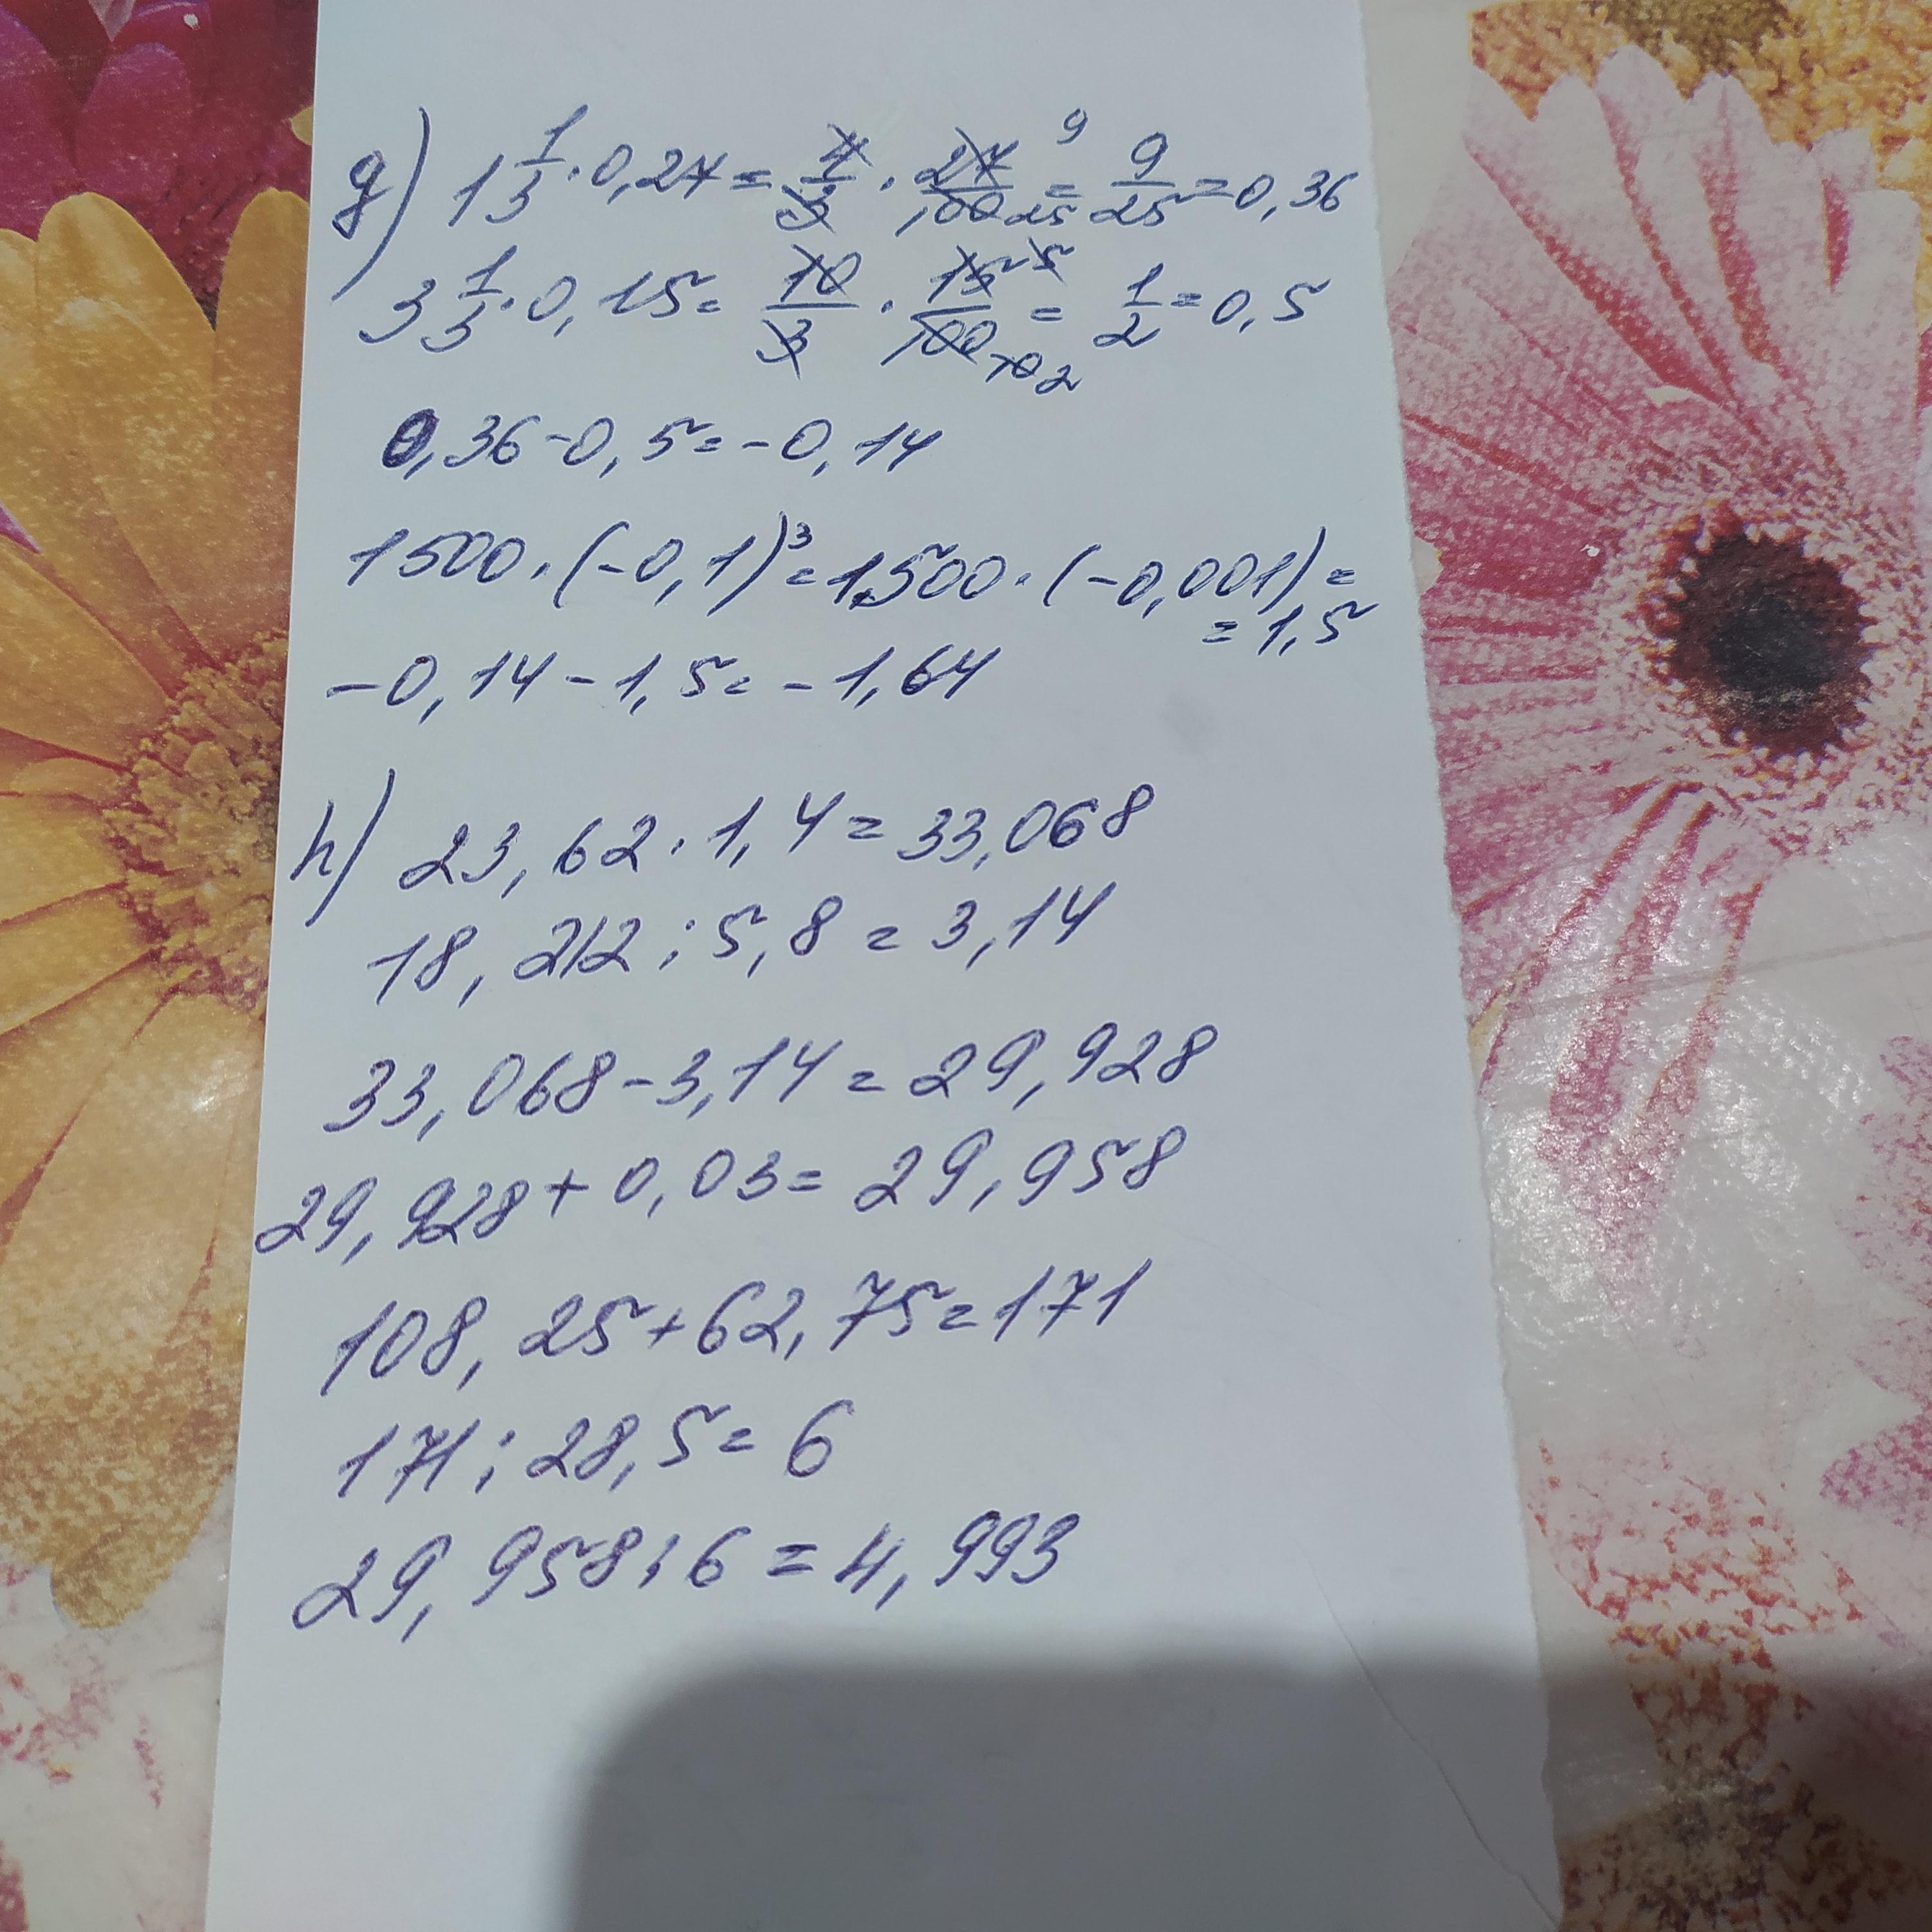 g) 1 1/3 · 0,27 = 4/3 · 27/100 9 25 = 9/25 = 0,36
3 1/3 · 0,15 = 10/3 · 15/100 5 10 2 = 1/2 = 0,5
0,36 - 0,5 = - 0,14
1500 · (-0,1)³ = 1,500 · (-0,001) =
= 1,5
- 0,14 - 1,5 = - 1,64
h) 23,62 · 1,4 = 33,068
18,212 : 5,8 = 3,14
33,068 - 3,14 = 29,928
29,928 + 0,03 = 29,958
108,25 + 62,75 = 171
171 : 28,5 = 6
29,958 : 6 = 4,993